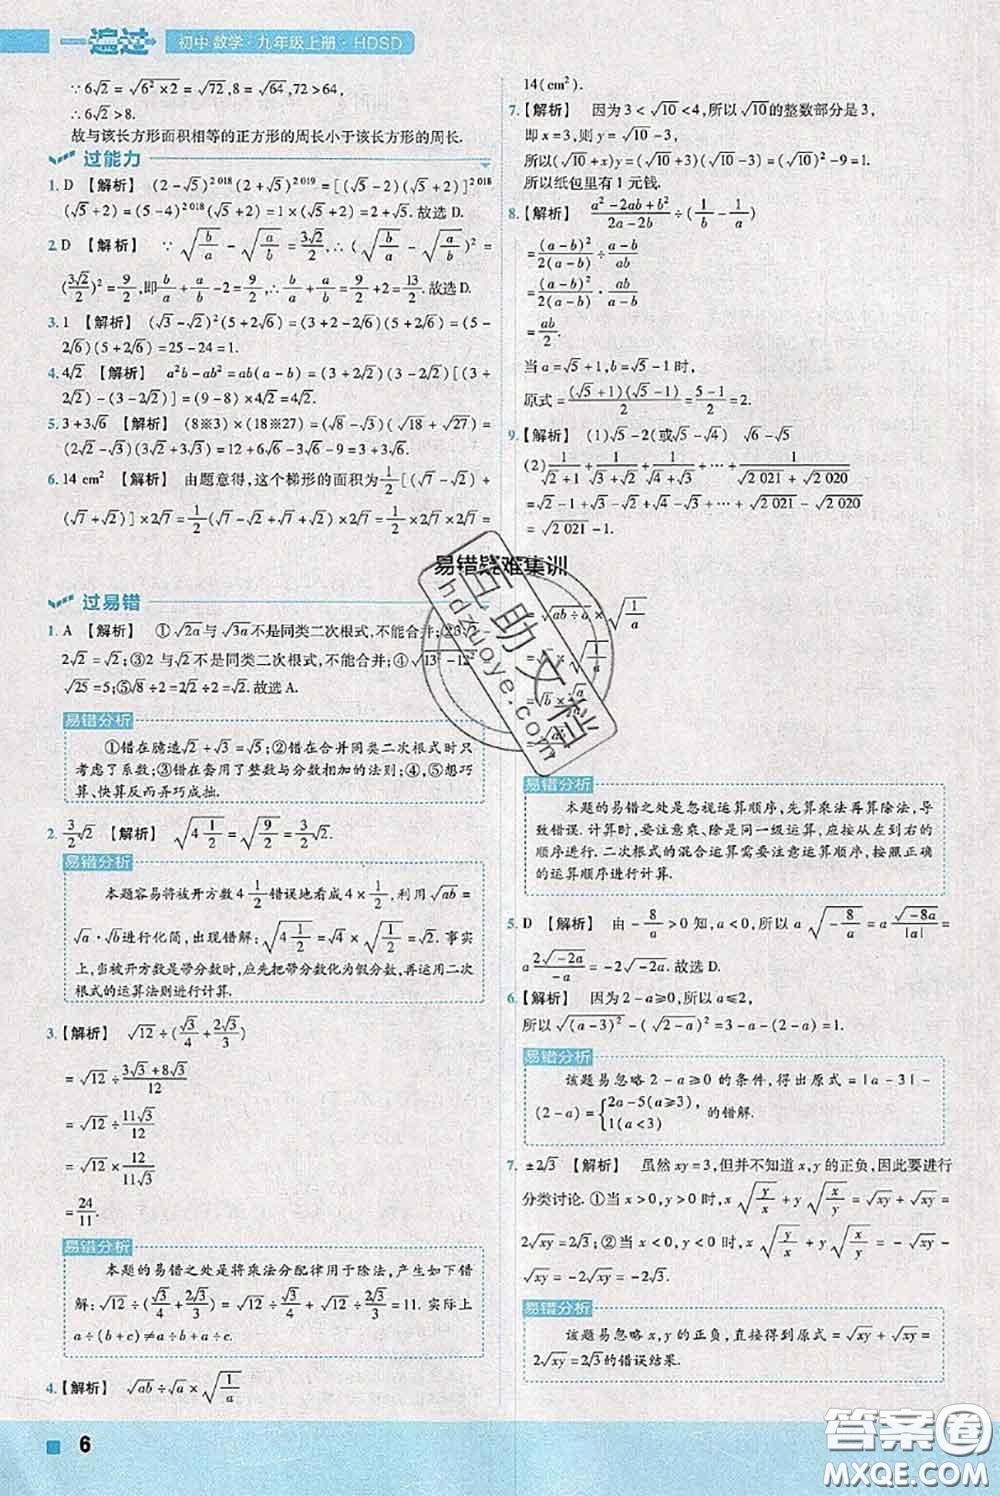 一遍过 初中 数学·九年级上册·HDSD
∵6√2=√(6²×2)=√72,8=√64,72>64,
∴6√2>8.
故与该长方形面积相等的正方形的周长小于该长方形的周长.
过能力
1. D 【解析】 (2-√5)^2018(2+√5)^2019=[(√5-2)(√5+2)]^2018
(√5+2)=(5-4)^2018(√5+2)=1×(√5+2)=√5+2.故选D.
2. D 【解析】 ∵√(b/a)-√(a/b)=3√2/2,∴(√(b/a)-√(a/b))²=
(3√2/2)²=9/2,即b/a+a/b-2=9/2,∴b/a+a/b=9/2+2=13/2.故选D.
3. 1 【解析】 (√3-√2)²(5+2√6)=(3+2-2√6)(5+2√6)=(5-
2√6)(5+2√6)=25-24=1.
4. 4√2 【解析】 a²b-ab²=ab(a-b)=(3+2√2)(3-2√2)[(3+
2√2)-(3-2√2)]=(9-8)×4√2=4√2.
5. 3+3√6 【解析】 (8※3)×(18※27)=(√8-√3)(√18+√27)=
(2√2-√3)(3√2+3√3)=12+6√6-3√6-9=3+3√6.
6. 14 cm² 【解析】 由题意得,这个梯形的面积为1/2[(√7-√2)+
(√7+√2)]×2√7=1/2(√7-√2+√7+√2)×2√7=1/2×2√7×2√7=
14(cm²).
7. 【解析】 因为3<√10<4,所以√10的整数部分是3,
即x=3,则y=√10-3,
所以(√10+x)y=(√10+3)(√10-3)=(√10)²-9=1.
所以纸包里有1元钱.
8. 【解析】 (a²-2ab+b²)/(2a-2b)÷(1/b-1/a)
=(a-b)²/2(a-b)÷(a-b)/ab
=(a-b)²/2(a-b)·ab/(a-b)
=ab/2.
当a=√5+1,b=√5-1时,
原式=(√5+1)(√5-1)/2=(5-1)/2=2.
9. 【解析】 (1)√5-2(或√5-√4) √6-√5
(2)1/(√2+1)+1/(√3+√2)+1/(√4+√3)+…+1/(√2 021+√2 020)
=√2-1+√3-√2+√4-√3+…+√2 021-√2 020
=√2 021-1.
易错疑难集训
过易错
1. A 【解析】 ①√2a与√3a不是同类二次根式,不能合并;②3√2-
2√2=√2;③2与√2不是同类二次根式,不能合并;④√(13²-12²)=
√25=5;⑤√8÷2=2√2÷2=√2.故选A.
易错分析
①错在臆造√2+√3=√5;②错在合并同类二次根式时只
考虑了系数;③错在套用了整数与分数相加的法则;④,⑤想巧
算、快算反而弄巧成拙.
2. 3/2√2 【解析】 √(4 1/2)=√(9/2)=3/2√2.
易错分析
本题容易将被开方数4 1/2错误地看成4×1/2,利用√ab=
√a·√b进行化简,出现错解:√(4 1/2)=√4×√(1/2)=√2.事实
上,当被开方数是带分数时,应先把带分数化为假分数,再运用二次
根式的运算法则进行计算.
3. 【解析】 √12÷(√3/4+2√3/3)
=√12÷(3√3+8√3)/12
=√12÷11√3/12
=√12×12/11√3
=24/11.
易错分析
本题的易错之处是将乘法分配律用于除法,产生如下错
解:√12÷(√3/4+2√3/3)=√12÷√3/4+√12÷2√3/3=11.实际上
a÷(b+c)≠a÷b+a÷c.
4. 【解析】 √ab÷√a×√(1/a)
=√(ab÷a)×√(1/a)
=√b×√(1/a)
=√b×√a/a
易错分析
本题的易错之处是忽视运算顺序,先算乘法再算除法,导
致错误.计算时,要注意乘、除是同一级运算,应按从左到右的
顺序进行.二次根式的混合运算需要注意运算顺序,按照正确
的运算顺序进行计算.
5. D 【解析】 由-8/a>0知,a<0,所以a√(-8/a)=a√(-8a)/|a|=
a 2√(-2a)/(-a)=-2√(-2a).故选D.
6. 【解析】 因为2-a≥0,所以a≤2,
所以√(a-3)²-(√(2-a))²=3-a-(2-a)=1.
易错分析
该题易忽略2-a≥0的条件,得出原式=|a-3|-
(2-a)={2a-5(a≥3), 1(a<3) 的错解.
7. ±2√3 【解析】 虽然xy=3,但并不知道x,y的正负,因此要进行
分类讨论.①当x>0,y>0时,x√(y/x)+y√(x/y)=√xy+√xy=
2√xy=2√3;②当x<0,y<0时,x√(y/x)+y√(x/y)=-√xy+
(-√xy)=-2√xy=-2√3.
易错分析
该题易忽略x,y的正负,直接得到原式=√xy+√xy=
2√xy=2√3的错误结果.
6
互助文档
hdzuoye.com
答案圈
MXQE.COM